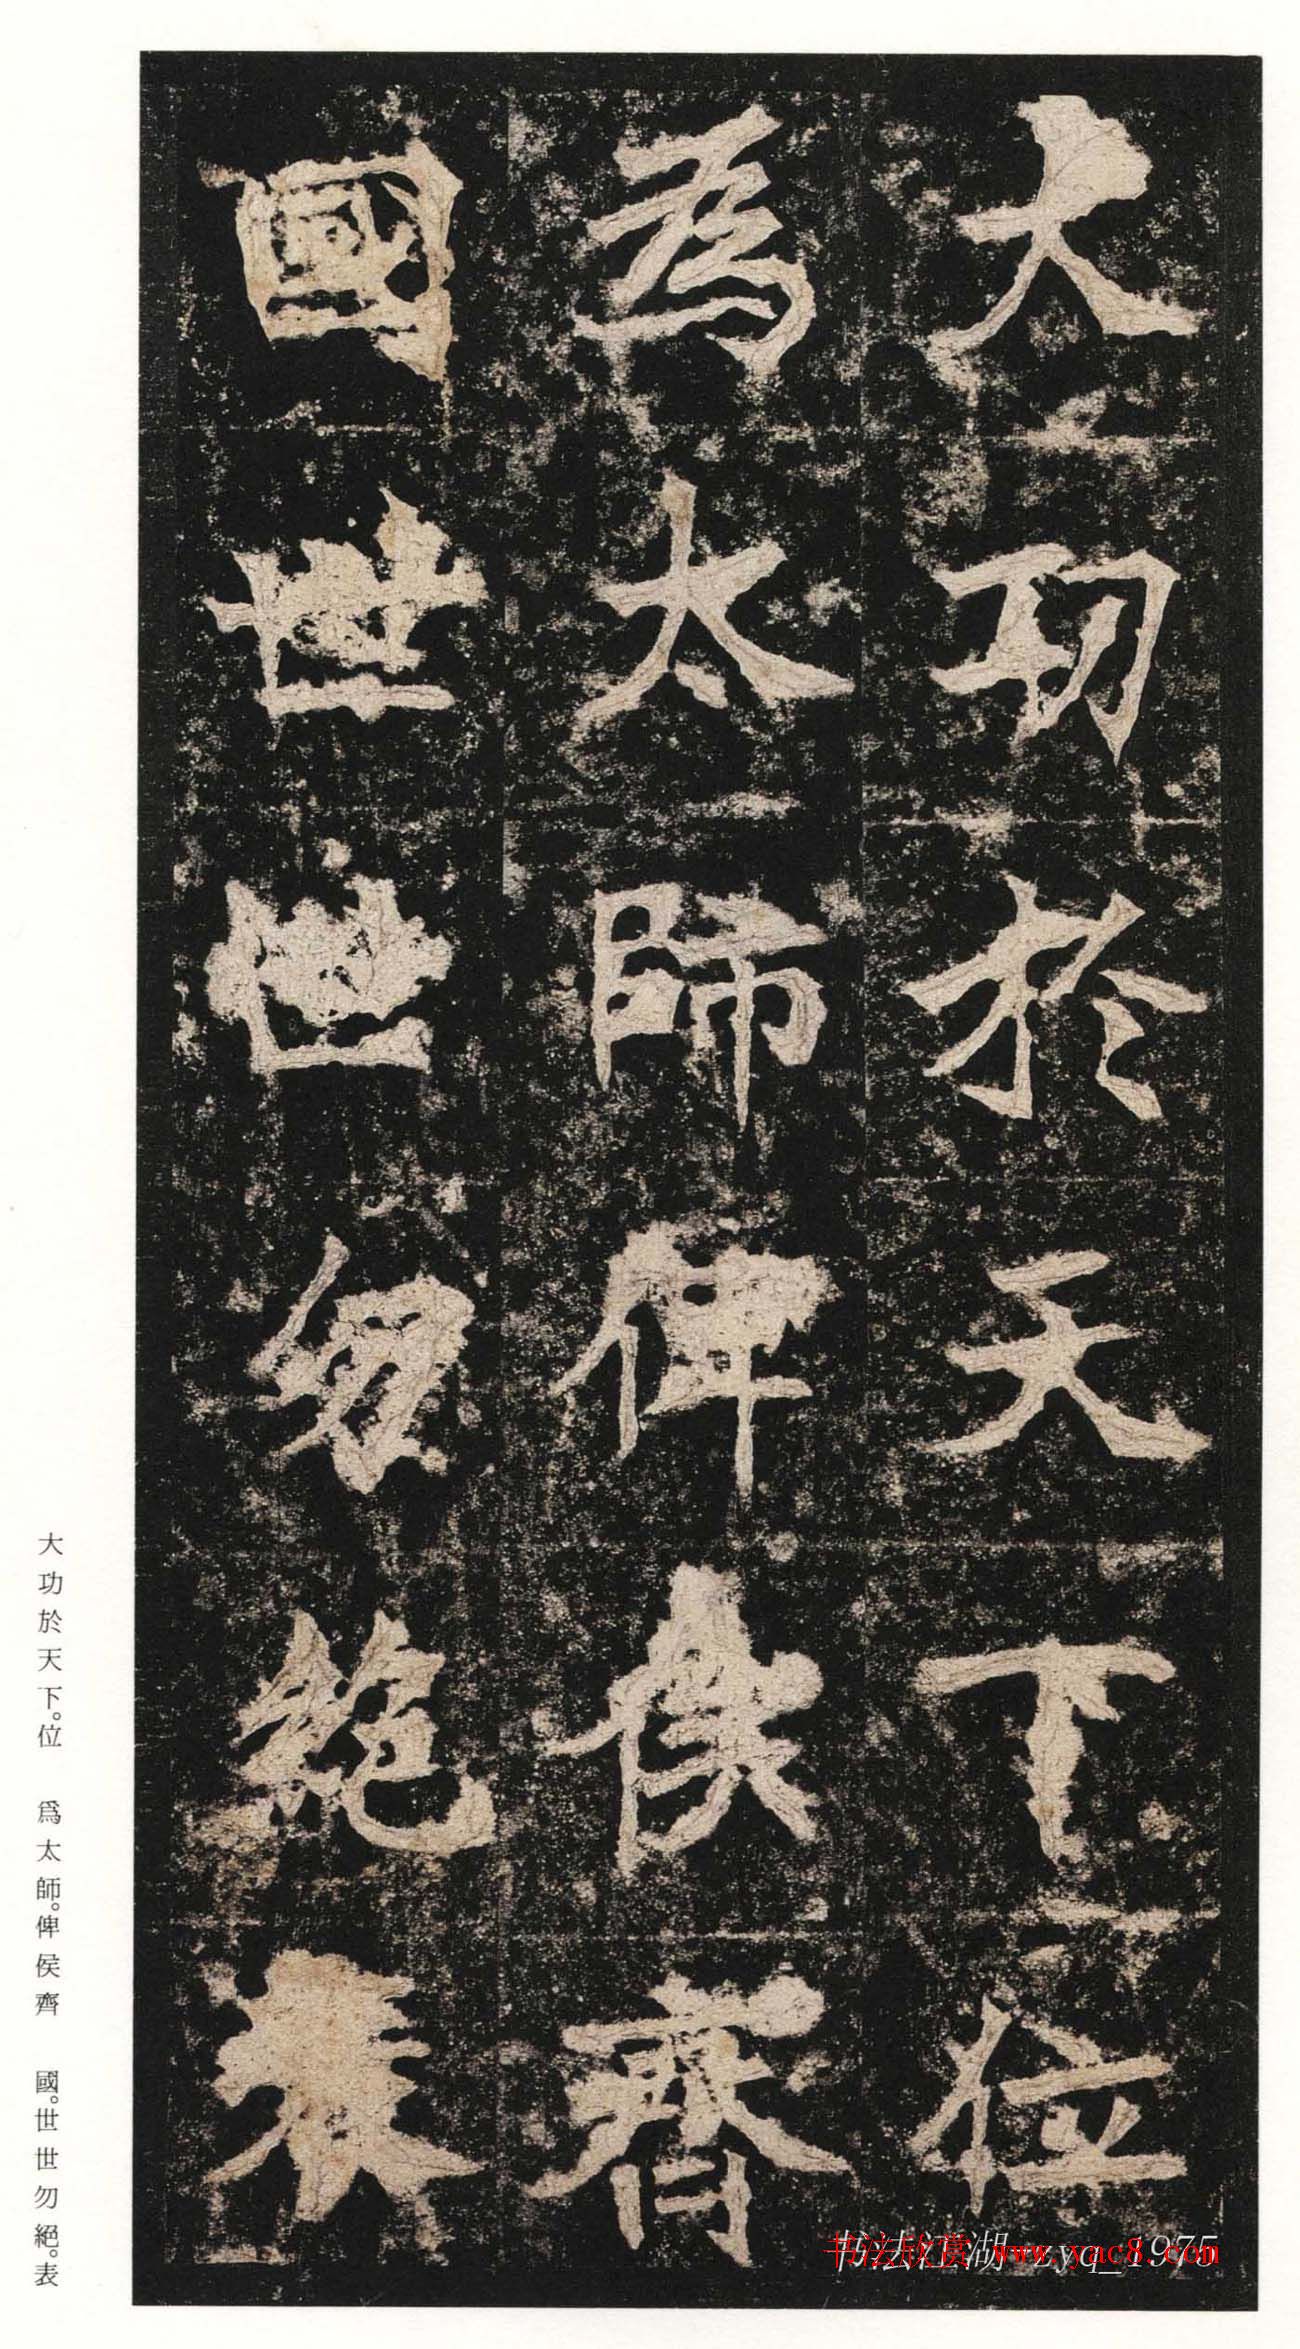 大功於天下位
為太師俾侯齊
國世世勿絕表
大功於天下。位 爲太師。俾侯齊 國。世世勿絕。表
书法欣赏 www.yac8.com
书法江湖-zyq_1975